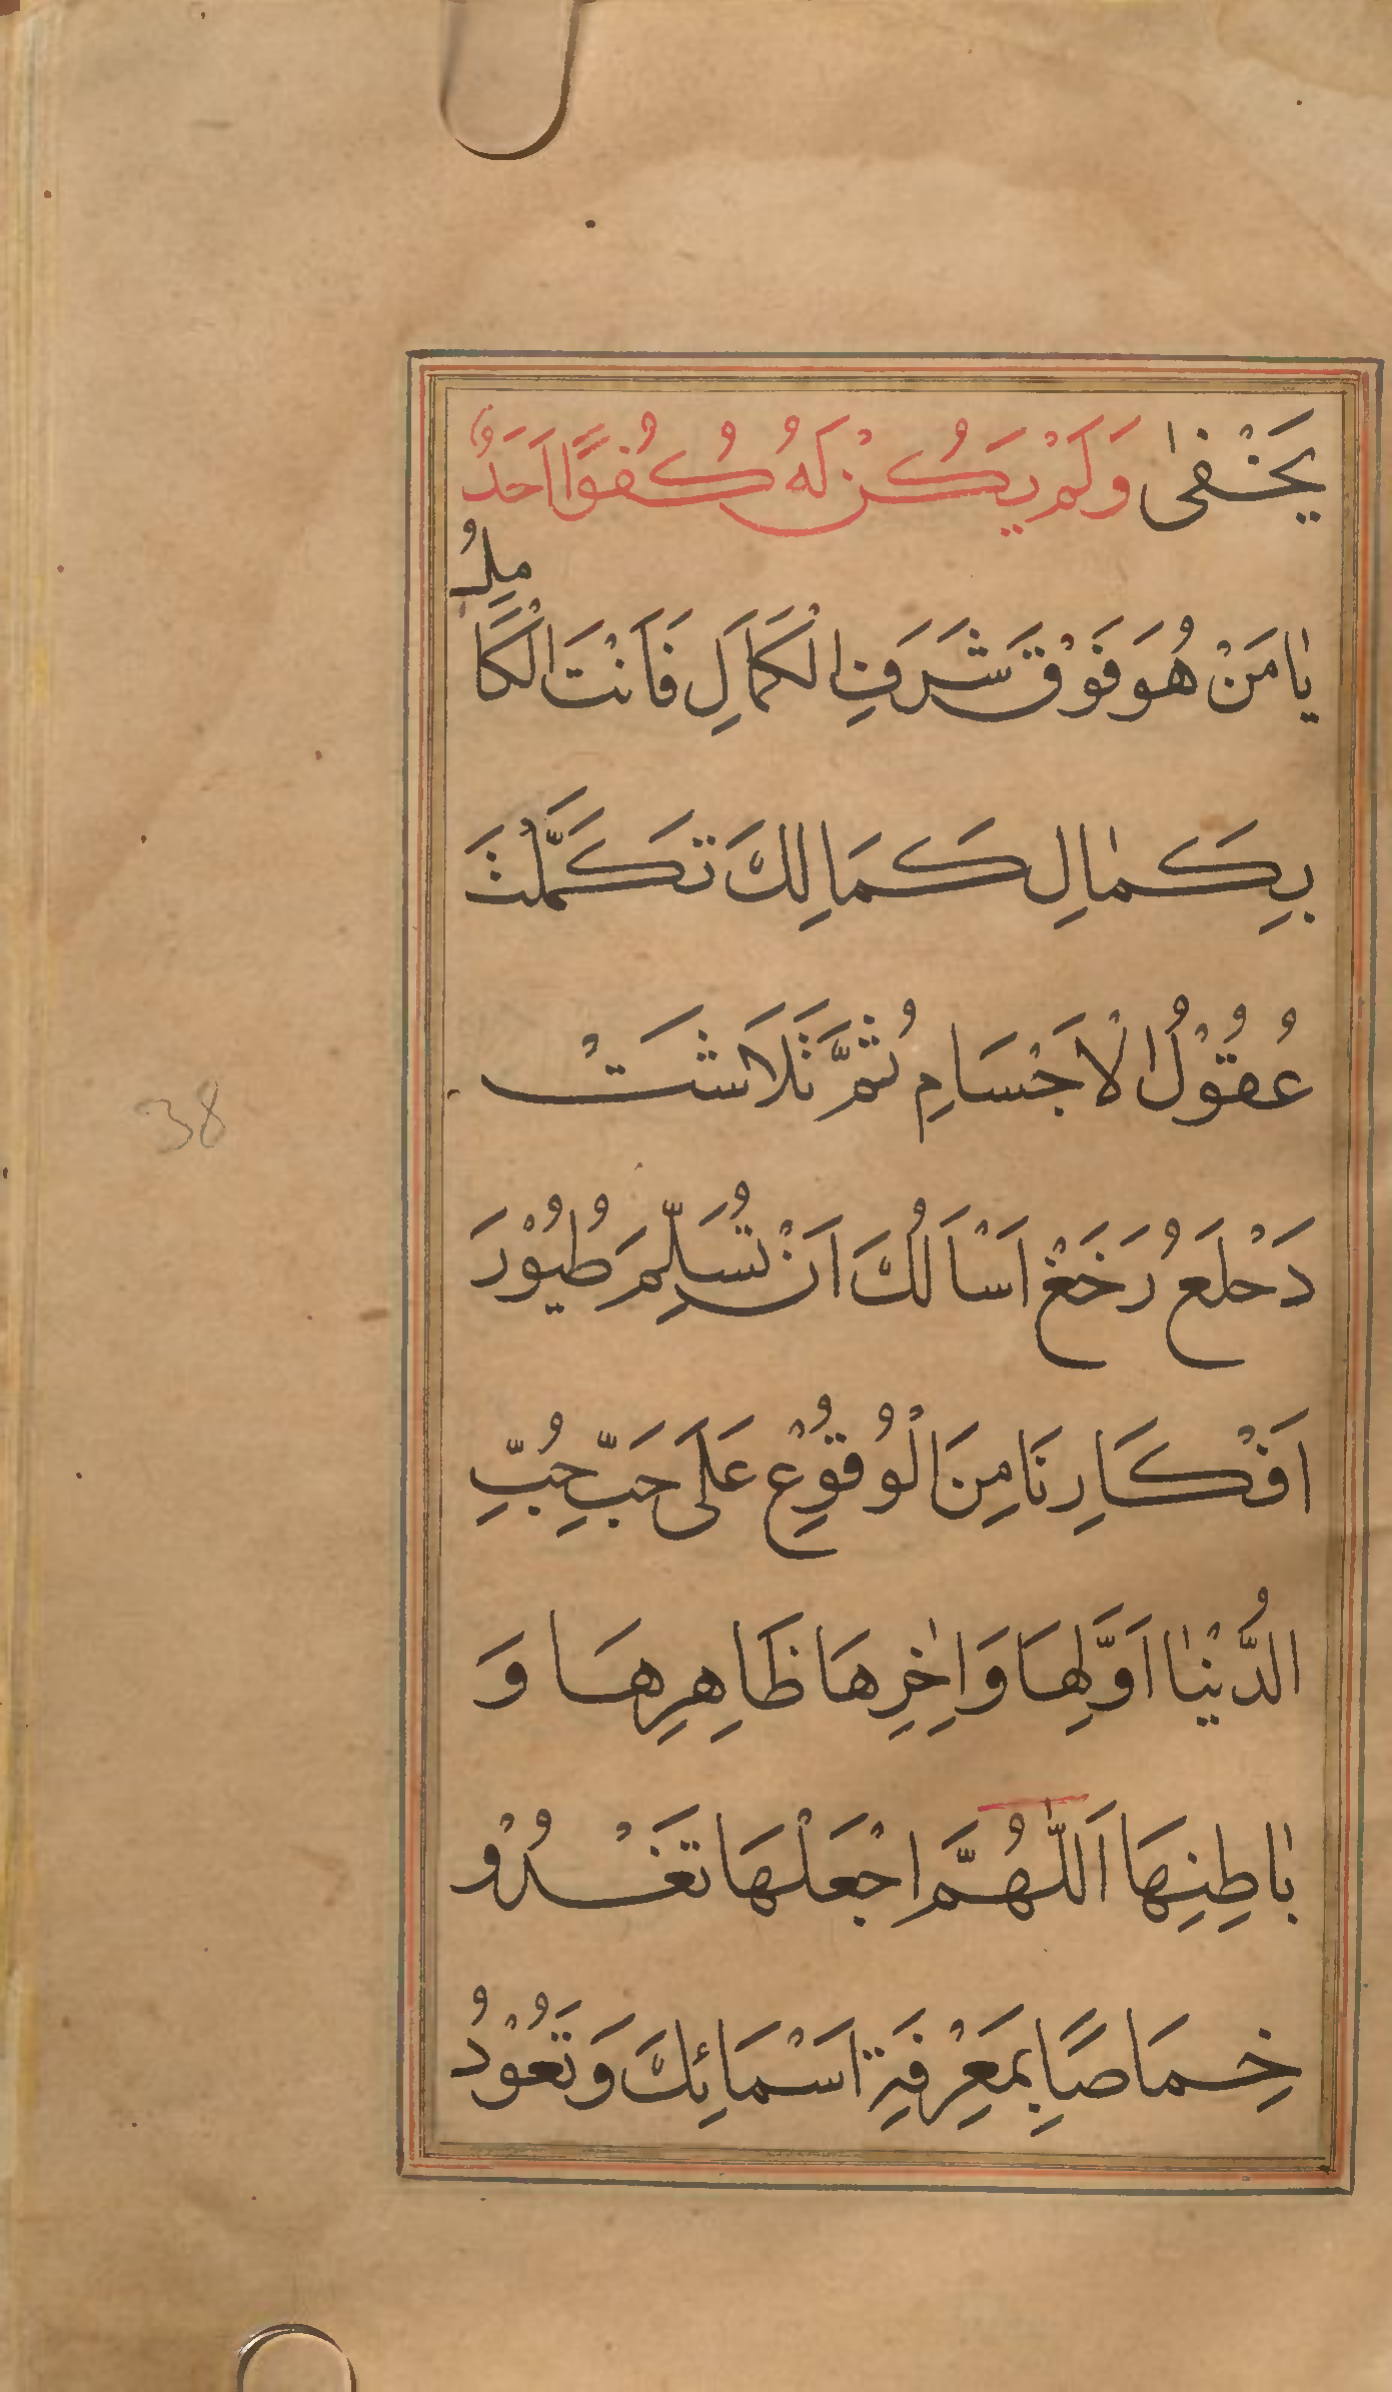 يَخْفٰى وَلَمْ يَكُنْ لَهُ كُفُوًا اَحَدٌ
يٰا مَنْ هُوَ فَوْقَ شَرَفِ الْكَمَالِ فَاَنْتَ الْكَامِلُ
بِكَمٰالِ كَمَالِكَ تَكَمَّلَتْ
عُقُوْلُ الْاَجْسَامِ ثُمَّ تَلَاشَتْ
دَحْلَعُ رَخَغْ اَسْاَلُكَ اَنْ تُسَلِّمَ طُيُوْرَ
اَفْكَارِنَا مِنَ الْوُقُوْعِ عَلَى حَبِّ حُبِّ
الدُّنْيٰا اَوَّلِهَا وَاٰخِرِهَا ظَاهِرِهَا وَ
بٰاطِنِهَا اَللّٰهُمَّ اجْعَلْهَا تَغْدُوْ
خِمَاصًا بِمَعْرِفَةِ اَسْمَائِكَ وَتَعُوْدُ
38